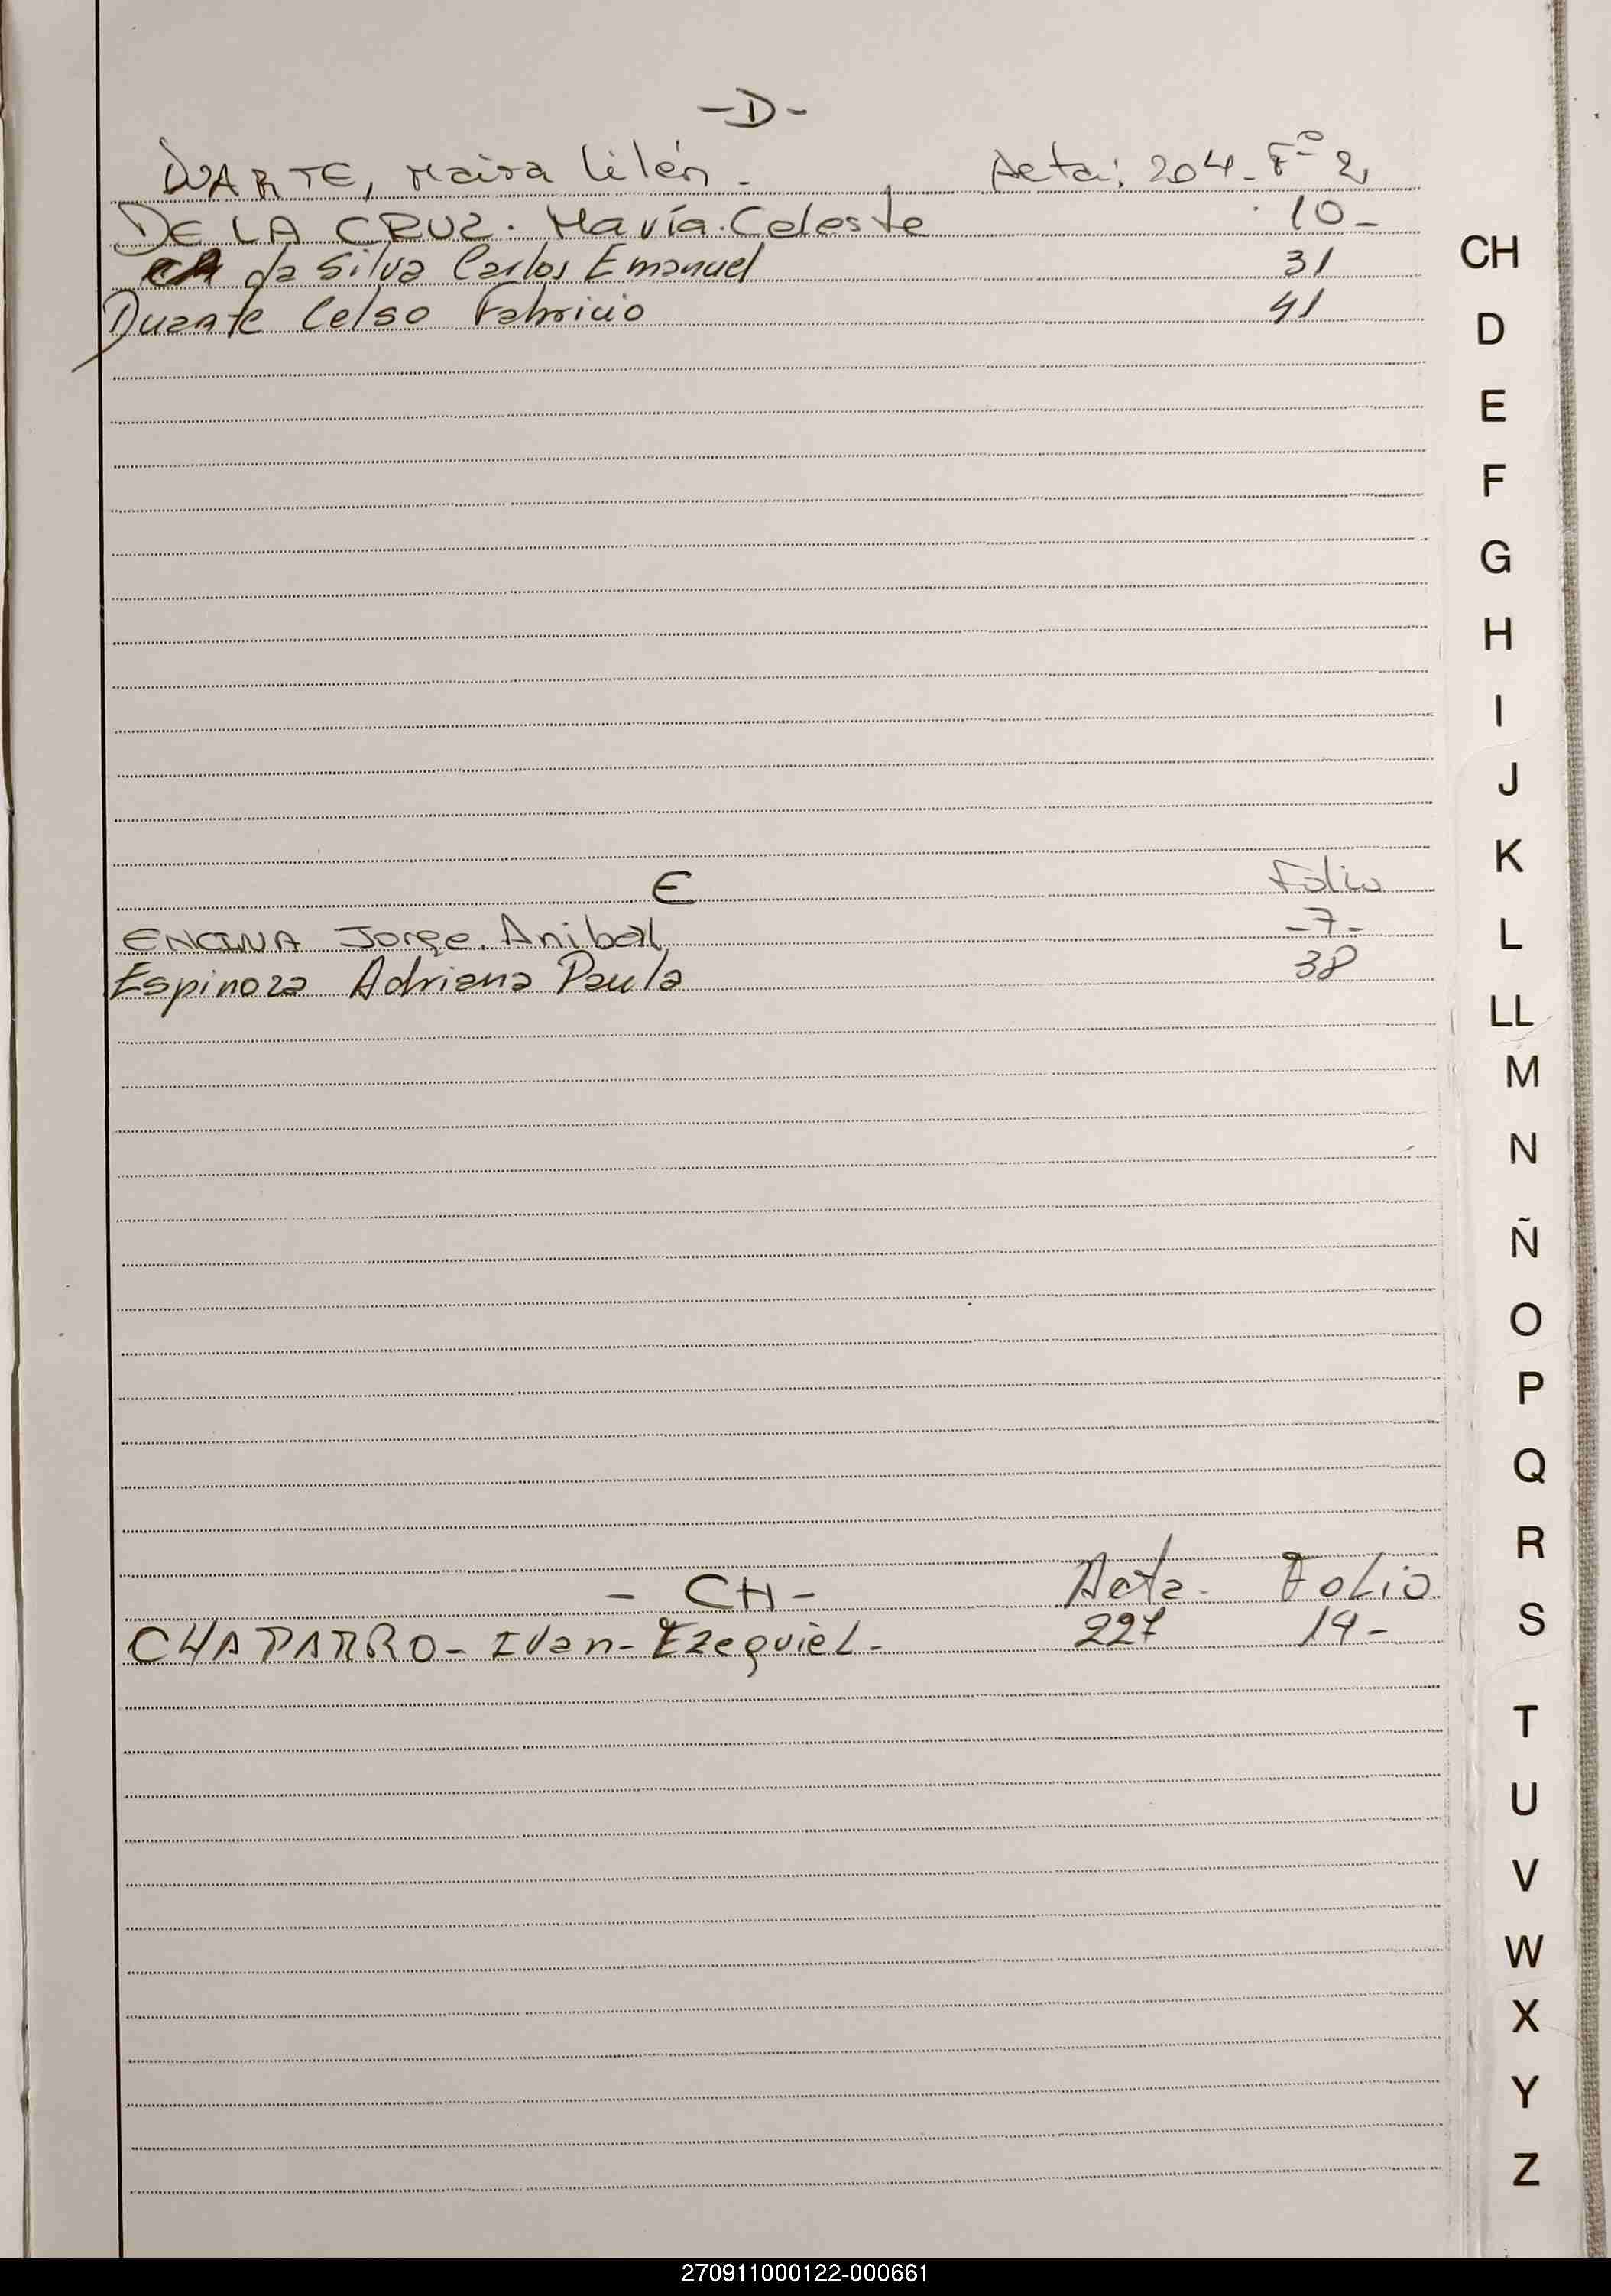 -D-
DUARTE, Maira Lilén - Acta: 204 - Fº 2
DE LA CRUZ. María Celeste 10 -
da Silva Carlos Emanuel 31
Duarte Celso Fabricio 41
E Folio
ENCINA Jorge Anibal -7-
Espinoza Adriana Paula 38
- CH - Acta - Folio
CHAPARRO - Ivan - Ezequiel - 227 14 -
CH
D
E
F
G
H
I
J
K
L
LL
M
N
Ñ
O
P
Q
R
S
T
U
V
W
X
Y
Z
270911000122-000661